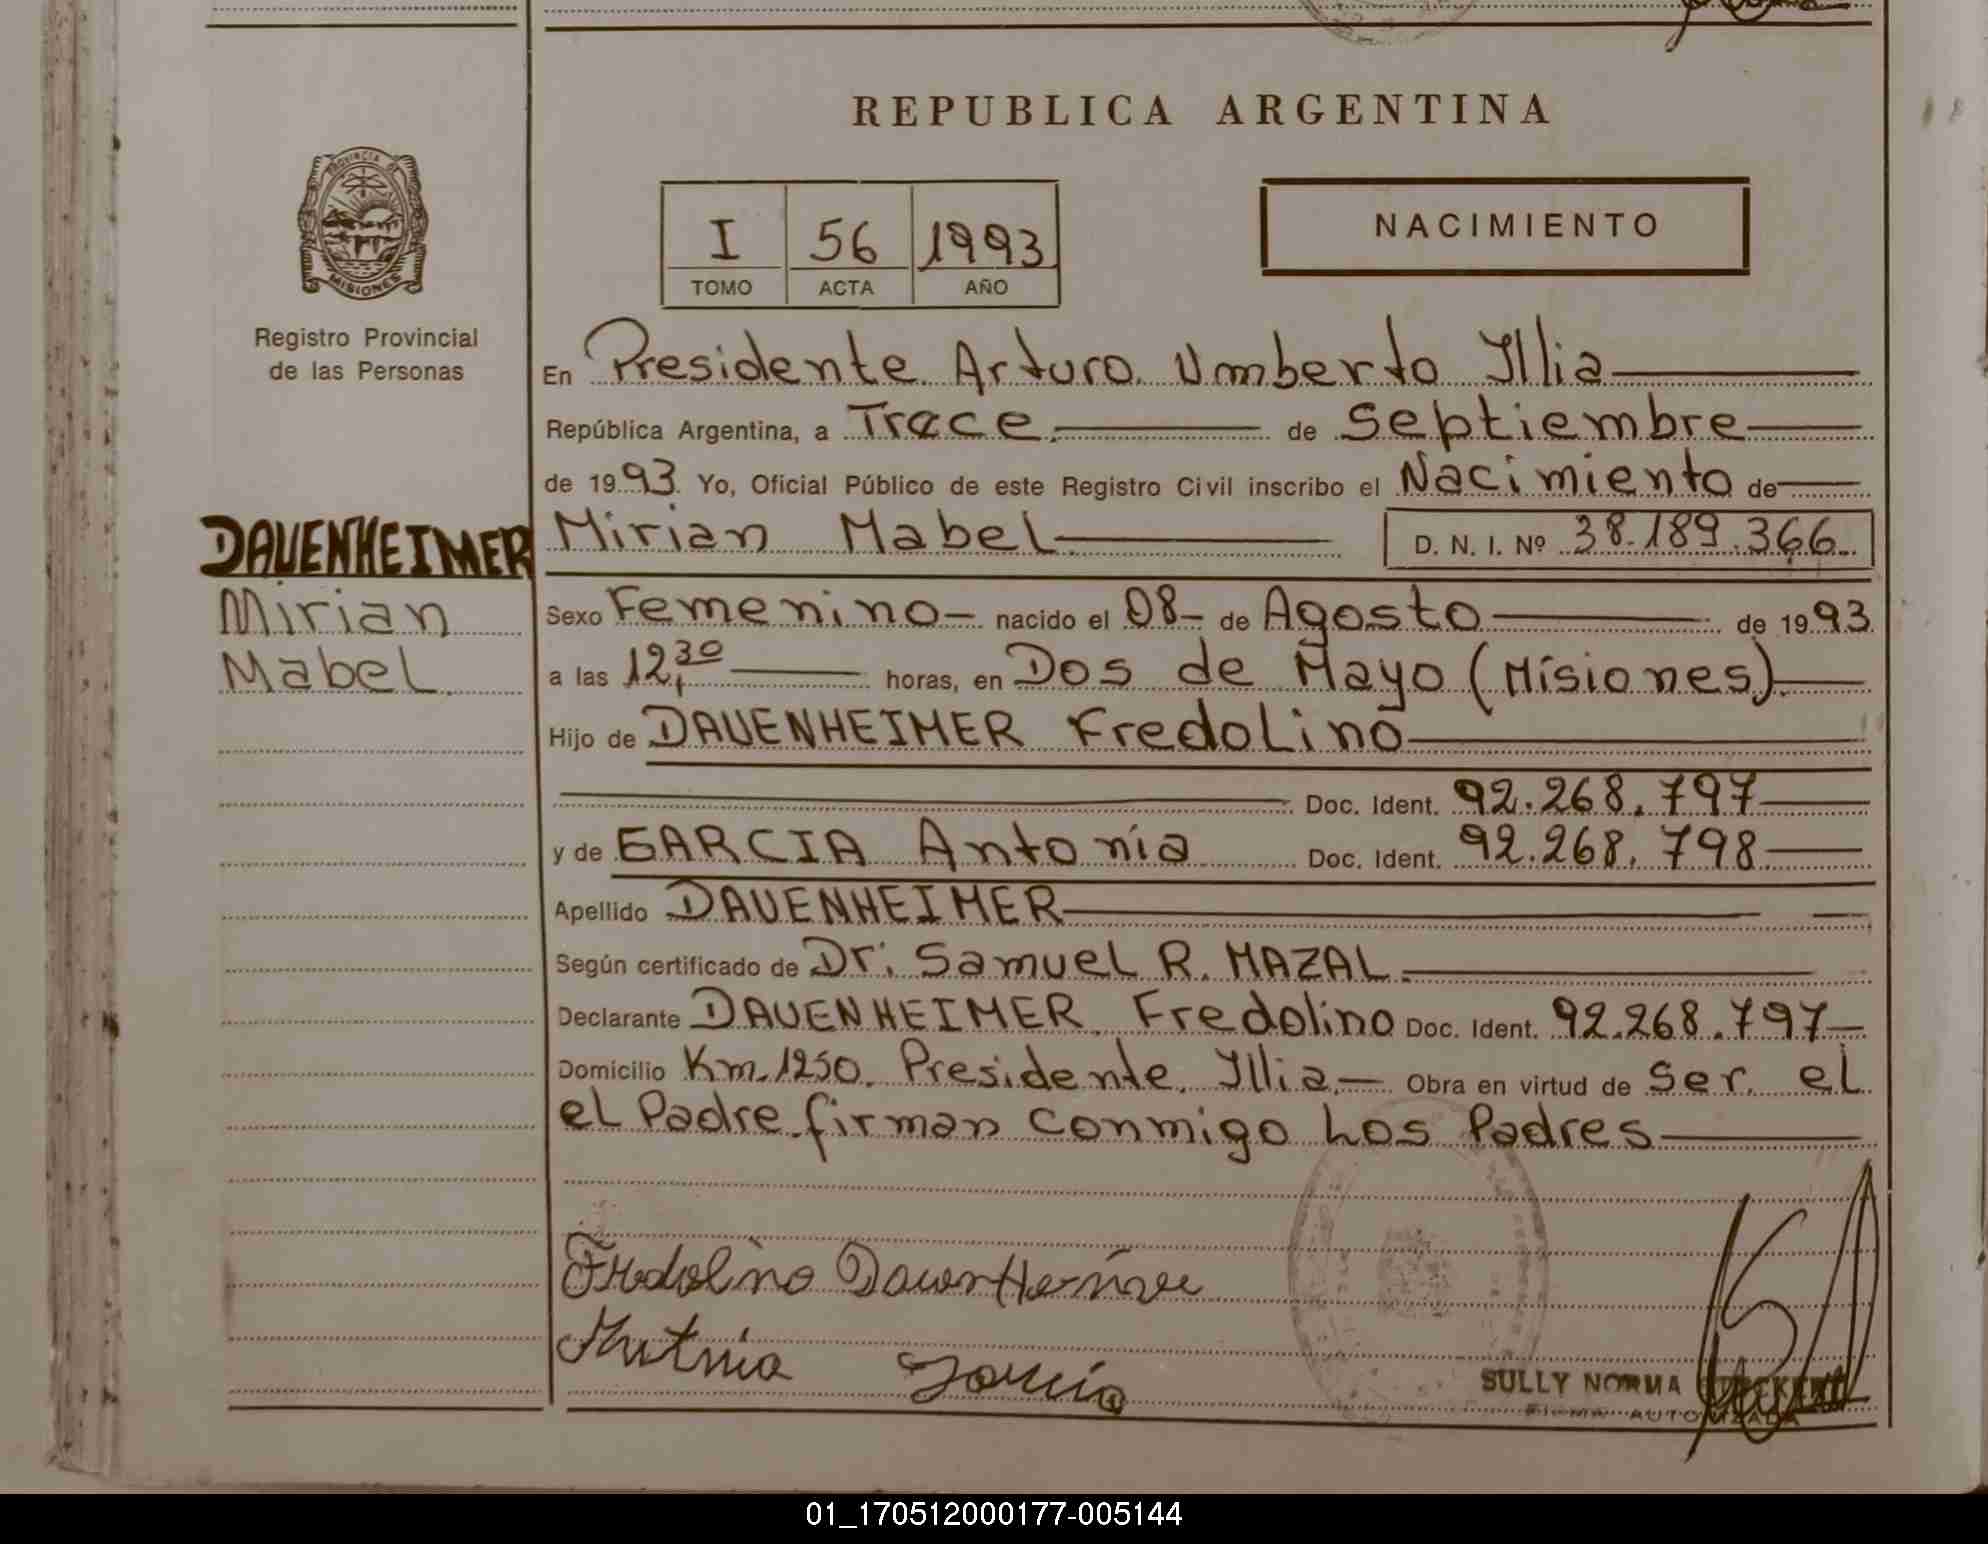 REPUBLICA ARGENTINA
PROVINCIA DE
MISIONES
Registro Provincial
de las Personas
I 56 1993
TOMO ACTA AÑO
NACIMIENTO
En Presidente Arturo Umberto Illia
República Argentina, a Trece de Septiembre
de 1993. Yo, Oficial Público de este Registro Civil inscribo el Nacimiento de
DAUENHEIMER
Mirian
Mabel
Mirian Mabel D. N. I. Nº 38.189.366
Sexo Femenino nacido el 08 de Agosto de 1993
a las 12,30 horas, en Dos de Mayo (Misiones)
Hijo de DAUENHEIMER Fredolino
Doc. Ident. 92.268.797
y de GARCIA Antonia Doc. Ident. 92.268.798
Apellido DAUENHEIMER
Según certificado de Dr. Samuel R. MAZAL
Declarante DAUENHEIMER Fredolino Doc. Ident. 92.268.797
Domicilio Km. 1250. Presidente Illia Obra en virtud de ser el
el Padre firman conmigo Los Padres
Fredolino
García
SULLY NORMA
FIRMA AUTORIZADA
01_170512000177-005144